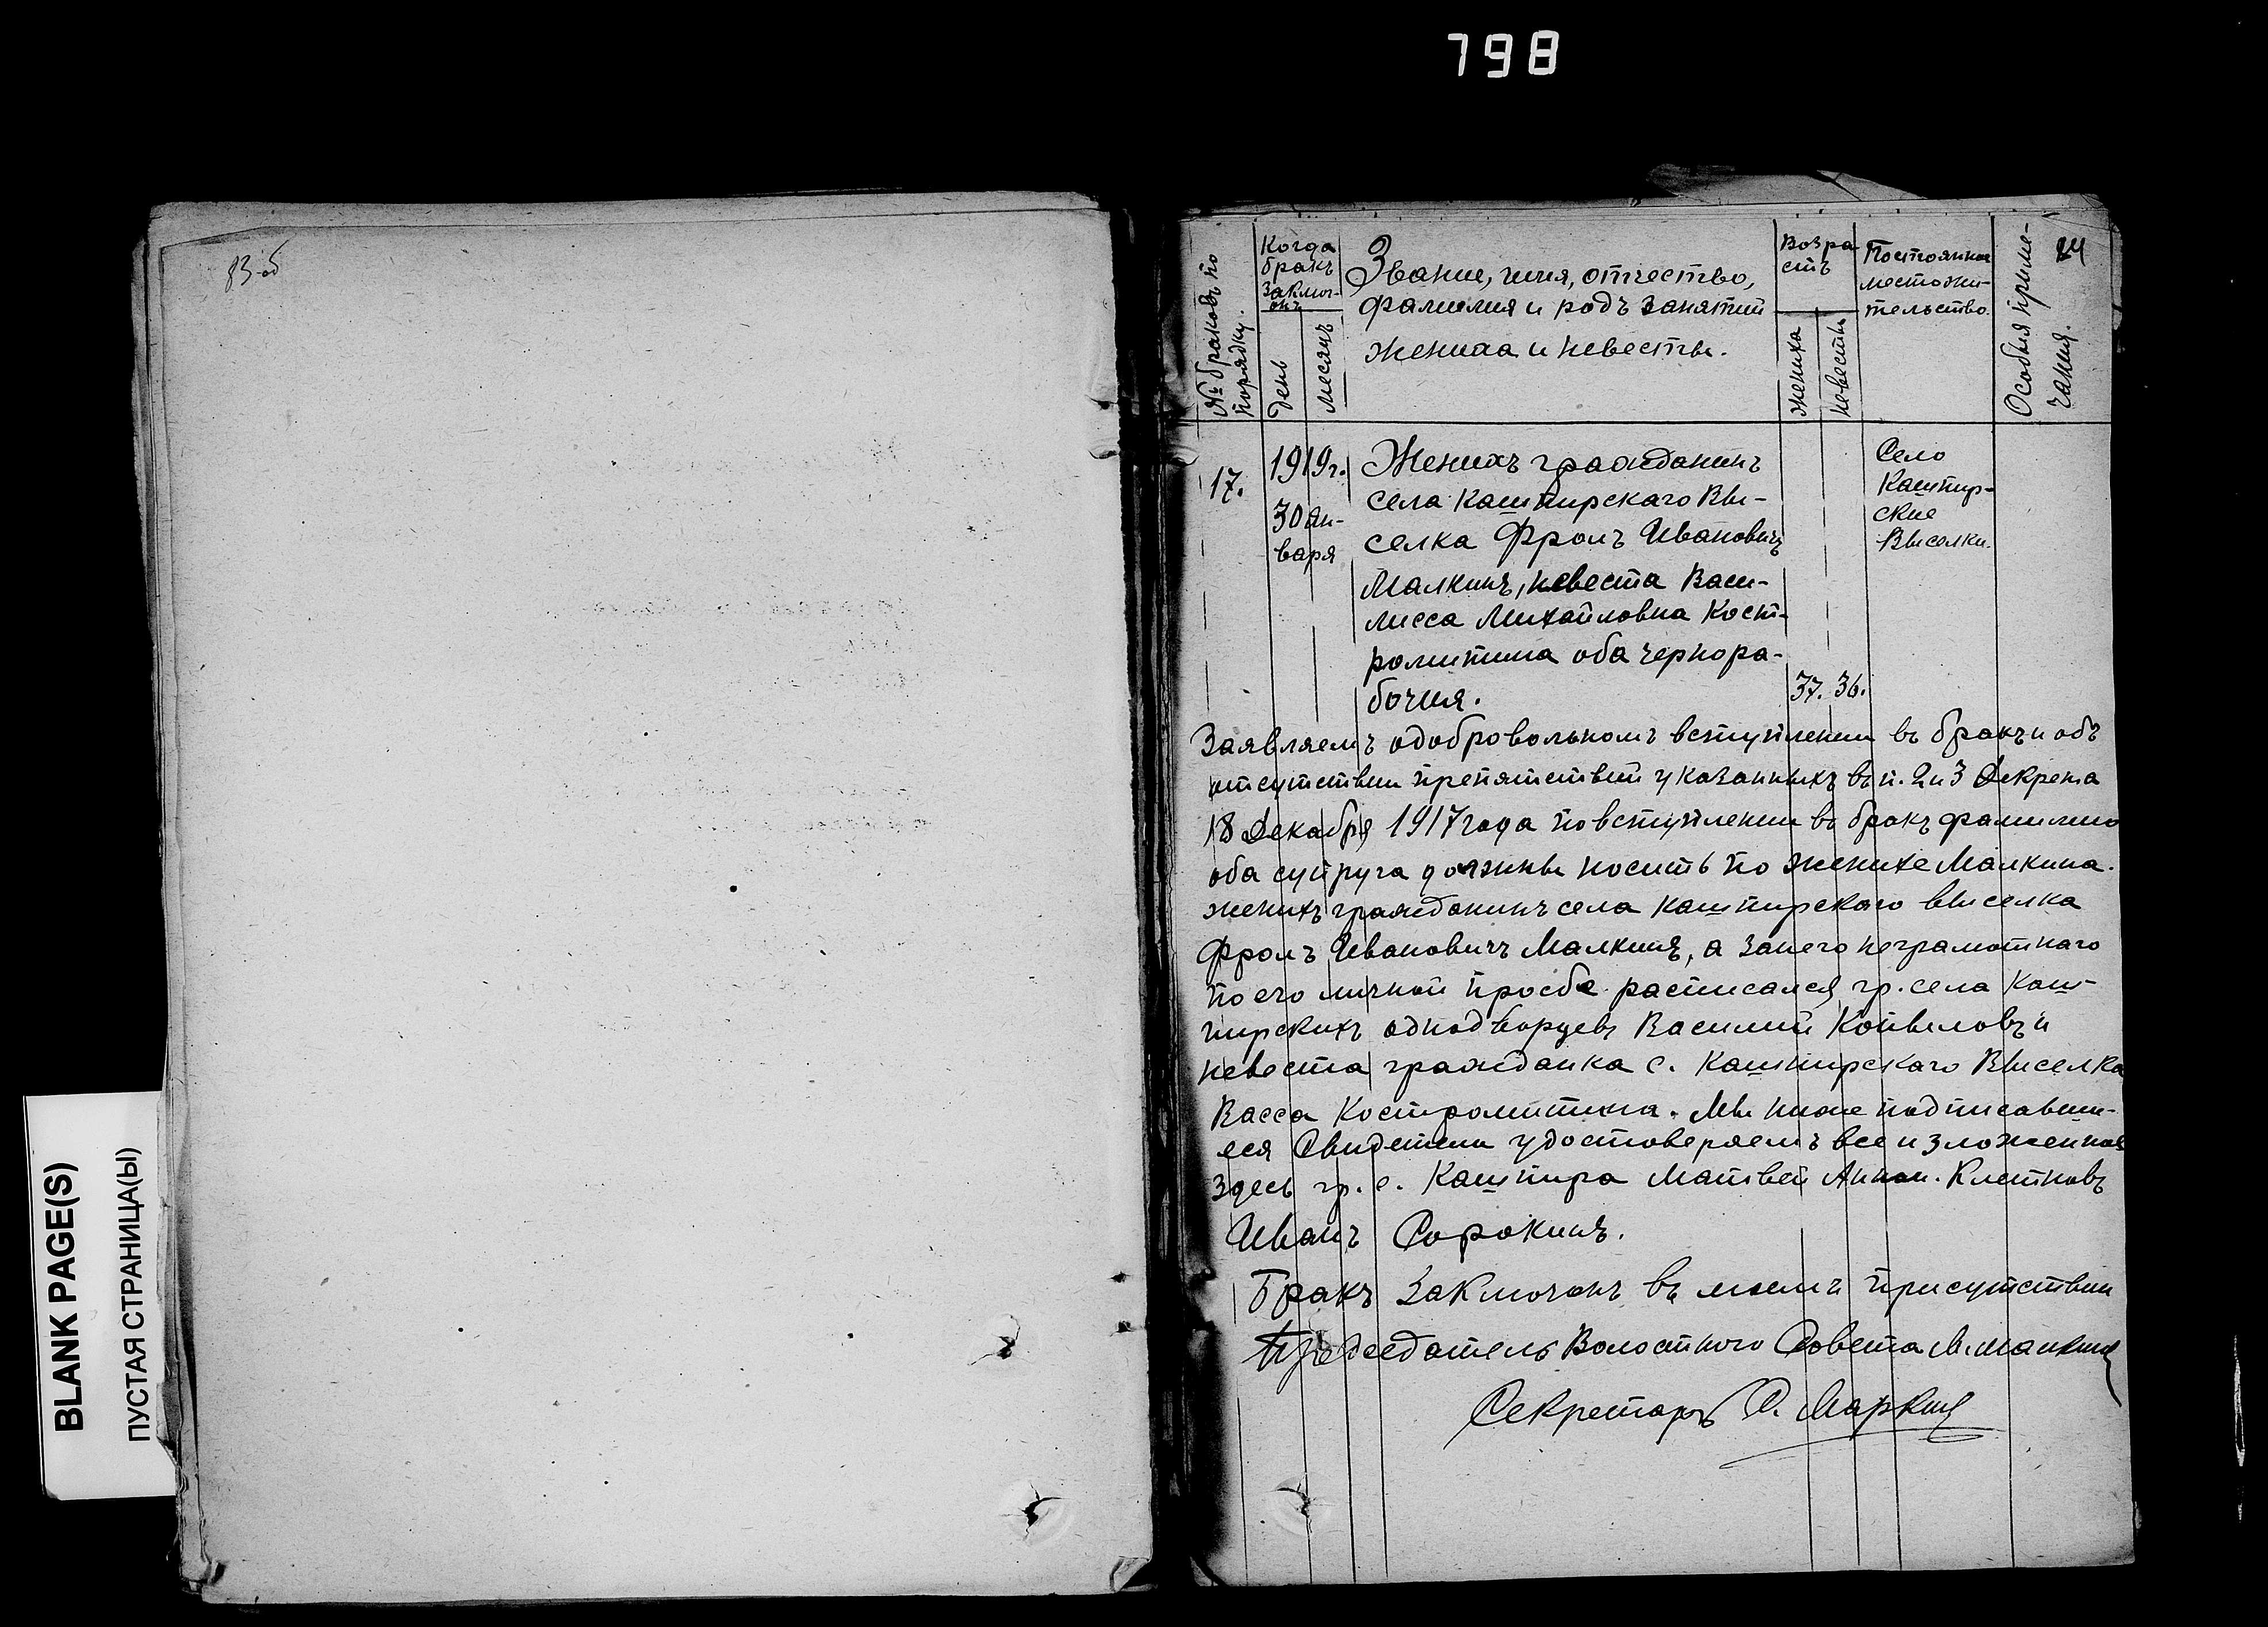 798
83-об
BLANK PAGE(S)
ПУСТАЯ СТРАНИЦА(Ы)
№ браковъ по порядку.
Когда бракъ заключ-
день
месяцъ
Звание, имя, отчество,
фамилия и родъ занятий
жениха и невесты.
Возра-
стъ
жениха
невесты
местожи-
тельство.
Особыя приме-
чания.
17.
1919г.
30 Ян-
варя
Женихъ гражданинъ
села Кашпирскаго Вы-
селка Фролъ Ивановичъ
Малкинъ, невеста Васи-
лисса Михайловна Кост-
ромитина оба чернора-
бочия.
37. 36.
Село
Кашпир-
ские
Выселки.
Заявляемъ одобровольномъ вступлении въ бракъ и объ
отсутствии препятствий указанныхъ въ п. 2 и 3 Декрета
18 Декабря 1917 года по вступлении въ бракъ фамилию
оба супруга должны носить по женихе Малкина.
женихъ гражданинъ села Кашпирскаго выселка
Фролъ Ивановичъ Малкинъ, а занего неграмотнаго
по его личной просбе расписался гр. села Каш-
пирскихъ однодворцевъ Василий и
невеста гражданка с. Кашпирскаго Выселка
Васса Костромитина. Мы ниже подписавши-
еся Свидетели удостоверяемъ все изложенное
Здесь гр. с. Кашпира Матвей Клетновъ
Иванъ Сорокинъ.
Бракъ Заключонъ въ моемъ присутствии
Председатель Волостного Совета
Секретарь Маркин